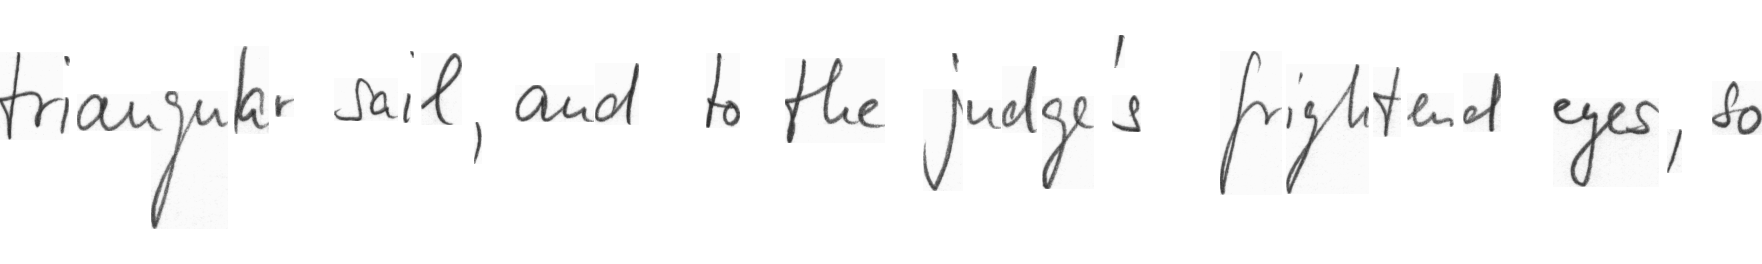 triangular sail, and to the judge's frightend eyes, so